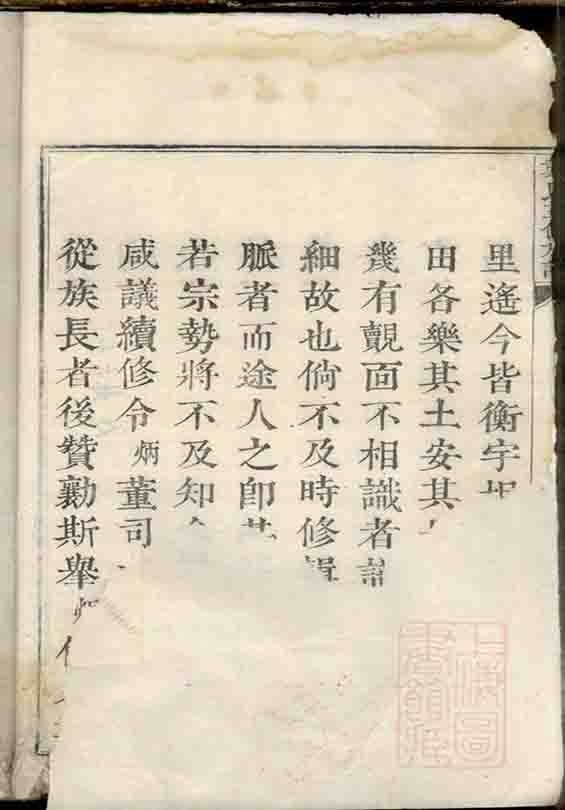 里遙今皆衡宇相
田各樂其土安其
幾有覿面不相識者
細故也倘不及時修輯
脈者而途人之即其
若宗勢將不及知
咸議續修令炳董司
從族長者後贊勷斯舉
上海圖書館藏